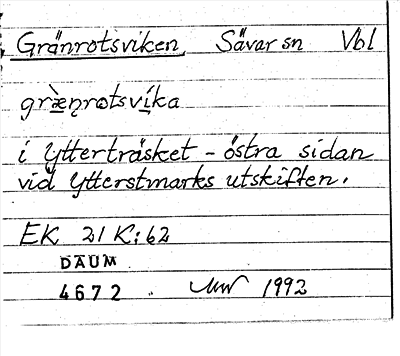 Gränrotsviken Sävar sn Vbl
græ̀n̥rotsvíka
i Ytterträsket - östra sidan
vid Ytterstmarks utskiften.
EK 21 K:62
DAUM
4672 1992